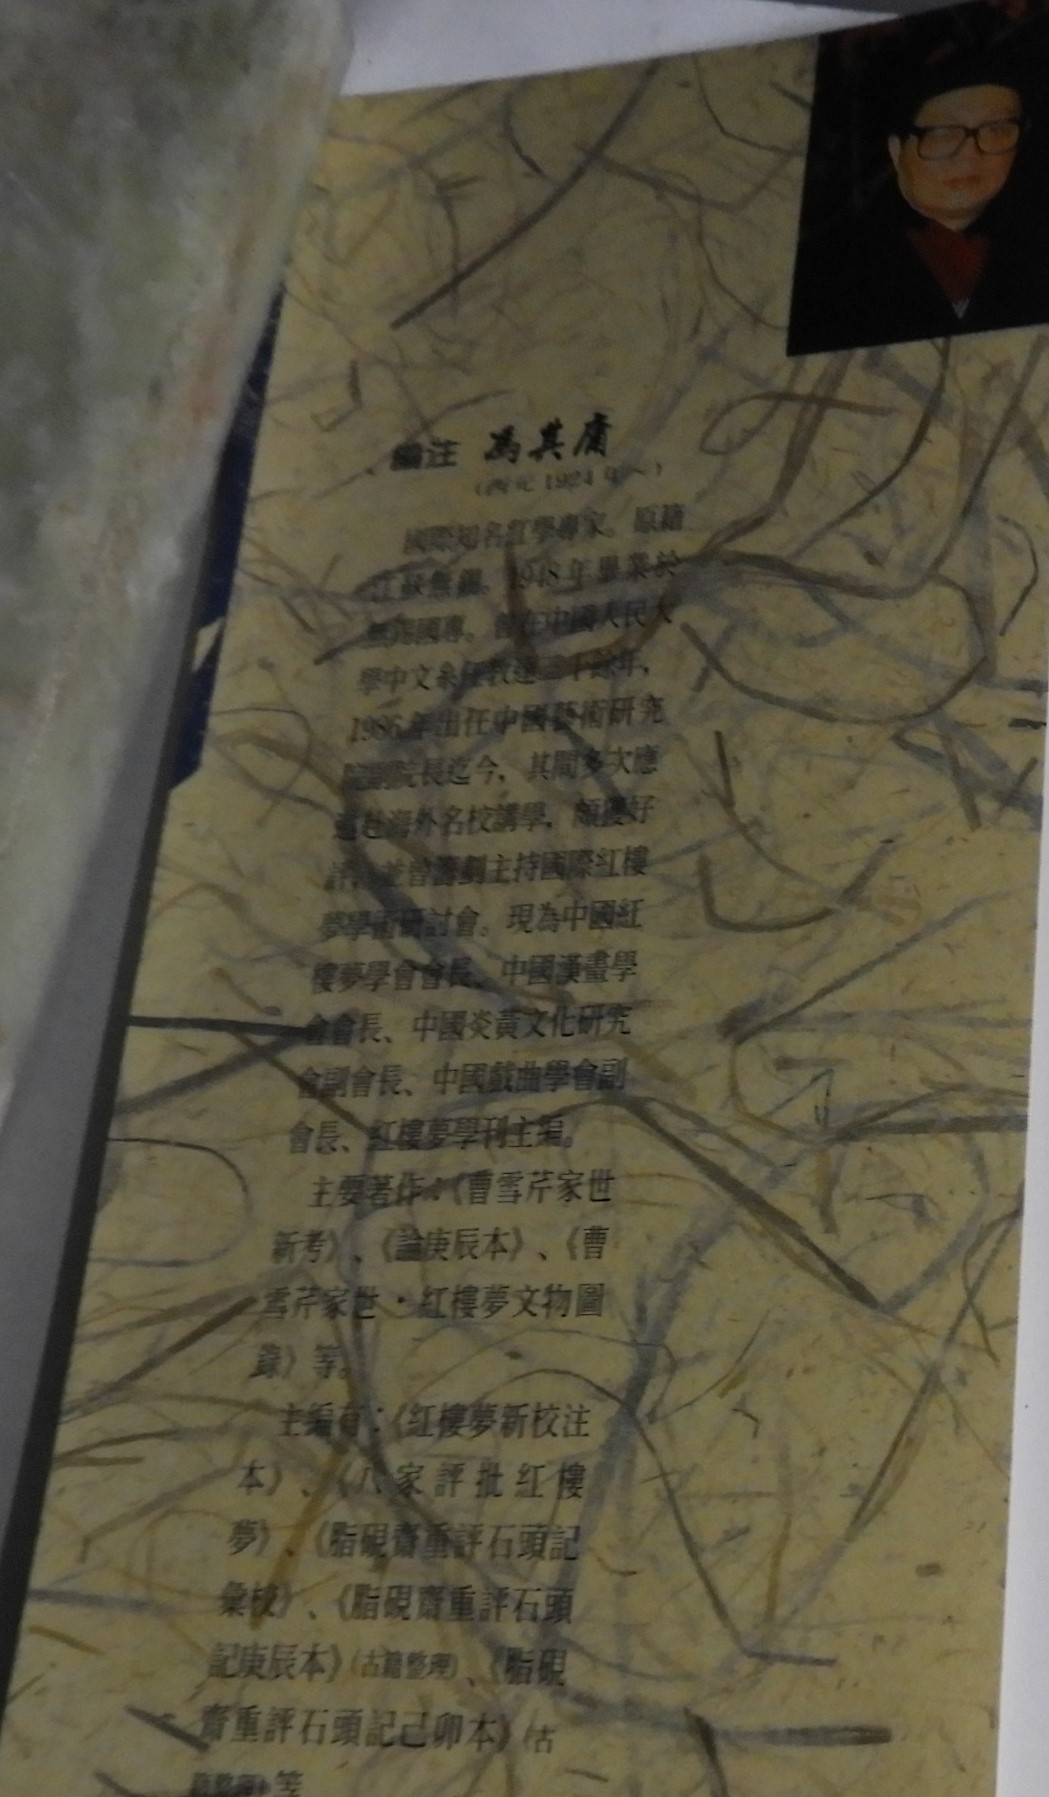 編注 馮其庸
(西元1924年~)
國際知名紅學專家。原籍
江蘇無錫。1948年畢業於
無錫國專。曾在中國人民大
學中文系任教達三十餘年，
1986年出任中國藝術研究
院副院長迄今，其間多次應
邀赴海外名校講學，頗獲好
評，並曾籌劃主持國際紅樓
夢學術研討會。現為中國紅
樓夢學會會長、中國漢畫學
會會長、中國炎黃文化研究
會副會長、中國戲曲學會副
會長、紅樓夢學刊主編。
主要著作：《曹雪芹家世
新考》、《論庚辰本》、《曹
雪芹家世・紅樓夢文物圖
錄》等。
主編有：《紅樓夢新校注
本》、《八家評批紅樓
夢》、《脂硯齋重評石頭記
彙校》、《脂硯齋重評石頭
記庚辰本》(古籍整理)、《脂硯
齋重評石頭記己卯本》(古
籍整理)等